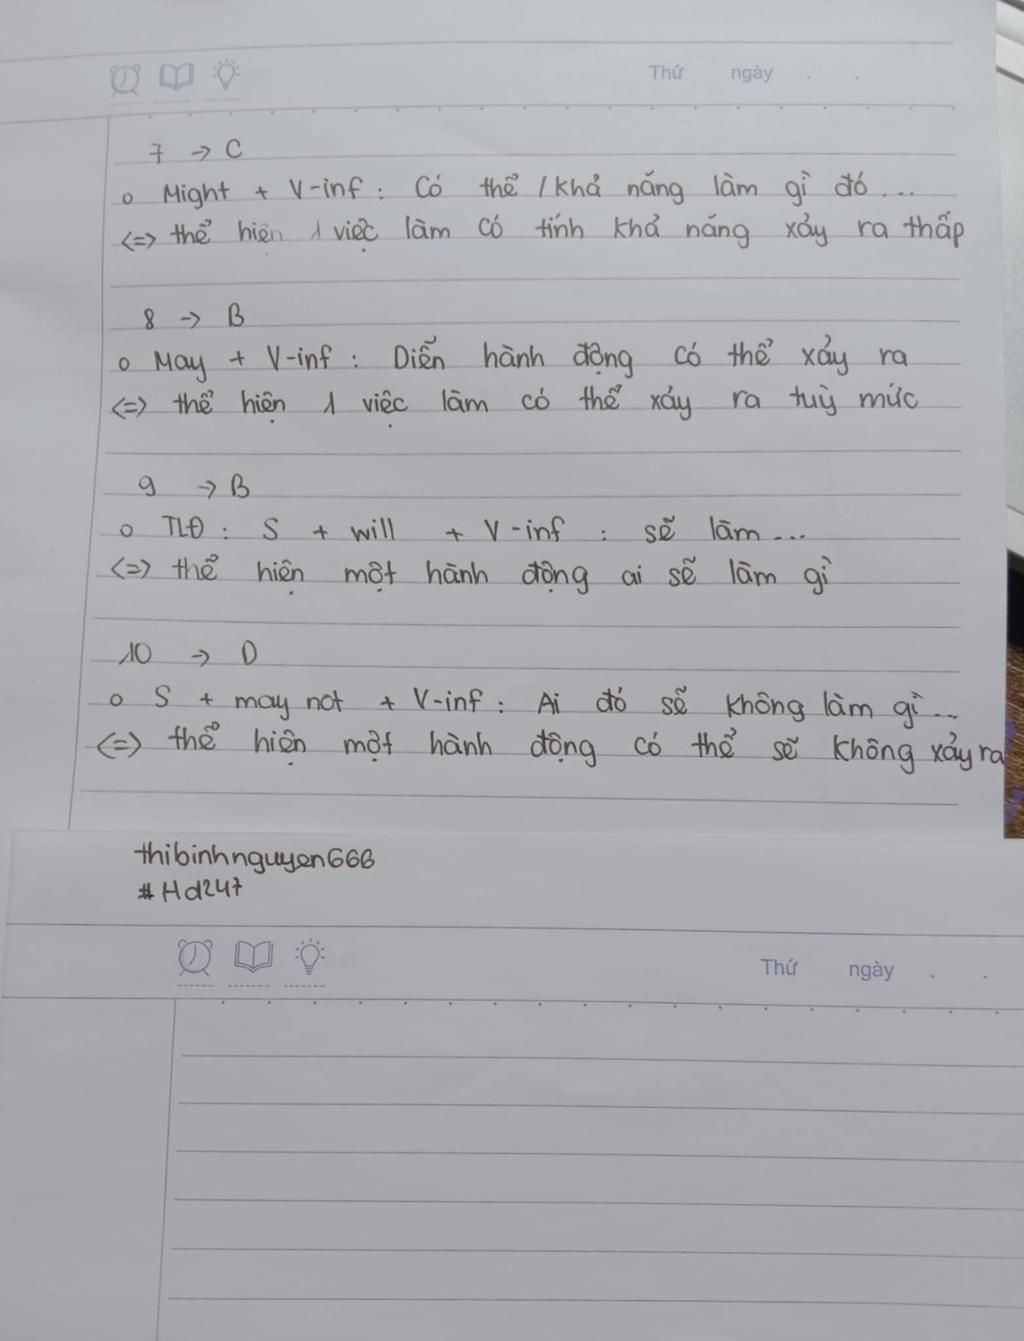 Thứ ngày . .
7 → C
o Might + V-inf : Có thể / khả năng làm gì đó ...
<=> thể hiện 1 việc làm có tính khả năng xảy ra thấp
8 → B
o May + V-inf : Diễn hành động có thể xảy ra
<=> thể hiện 1 việc làm có thể xảy ra tuỳ mức
9 → B
o TLĐ : S + will + V-inf : sẽ làm ...
<=> thể hiện một hành động ai sẽ làm gì
10 → D
o S + may not + V-inf : Ai đó sẽ không làm gì ...
<=> thể hiện một hành động có thể sẽ không xảy ra
thibinhnguyen666
#Hd247
Thứ ngày . .